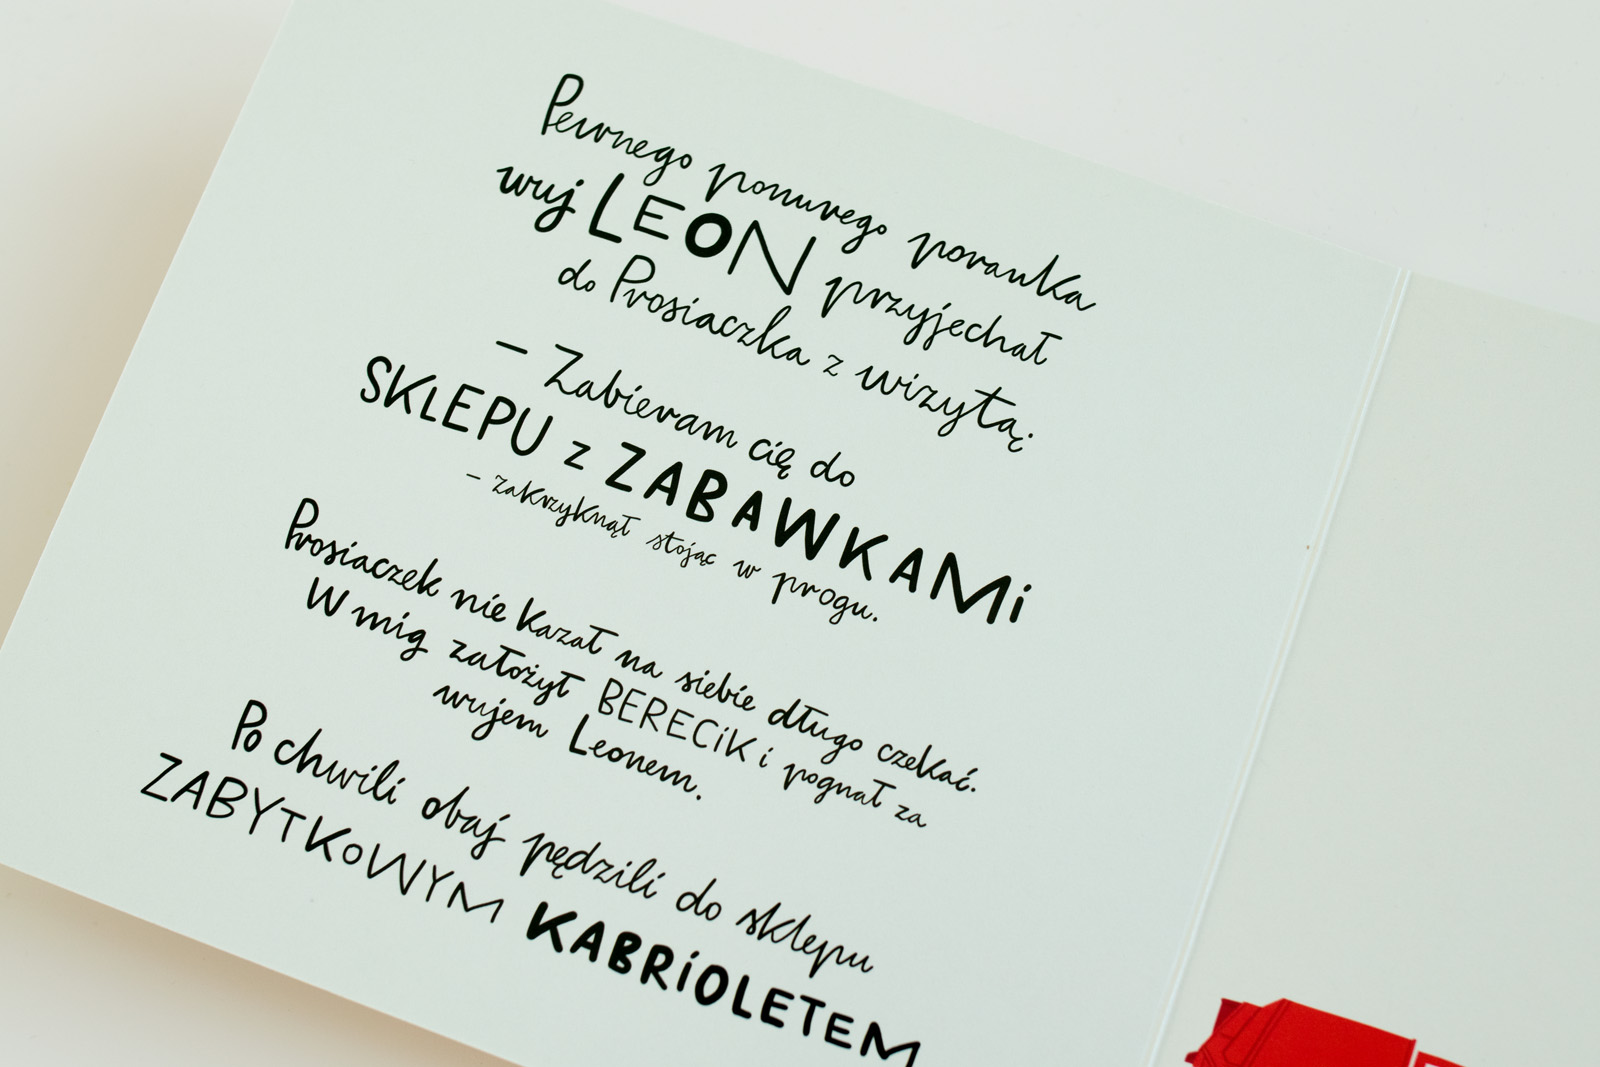 Pewnego ponurego poranka
wuj LEON przyjechał
do Prosiaczka z wizytą:
– Zabieram cię do
SKLEPU z ZABAWKAMi
– zakrzyknął stojąc w progu.
Prosiaczek nie kazał na siebie długo czekać.
W mig założył BERECiK i pognał za
wujem Leonem.
Po chwili obaj pędzili do sklepu
ZABYTKOWYM KABRiOLETEM